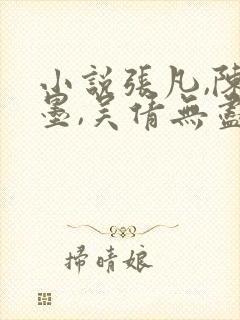 小說張凡,陳
墨,吳倩無盡
掃晴娘